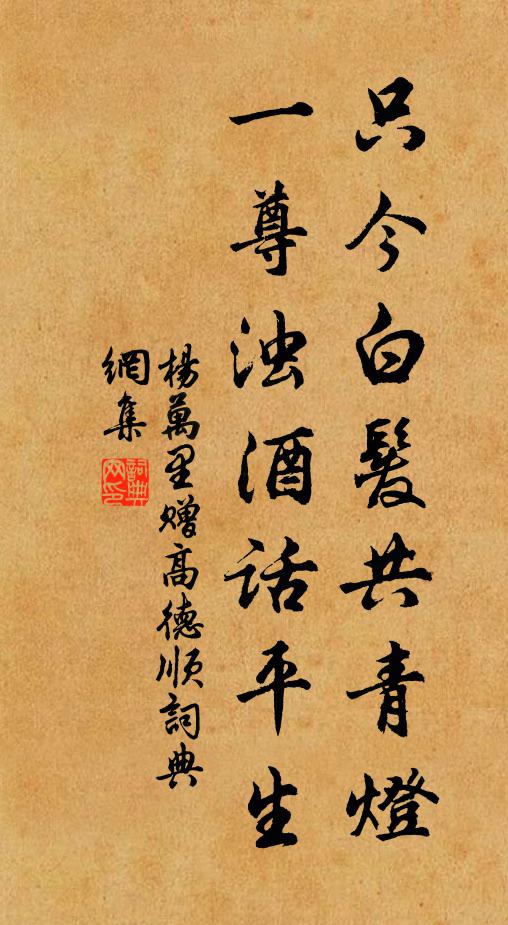 只今白髮共青燈
一尊浊酒話平生
楊萬里赠高德順詞典
網集
詞典
网印